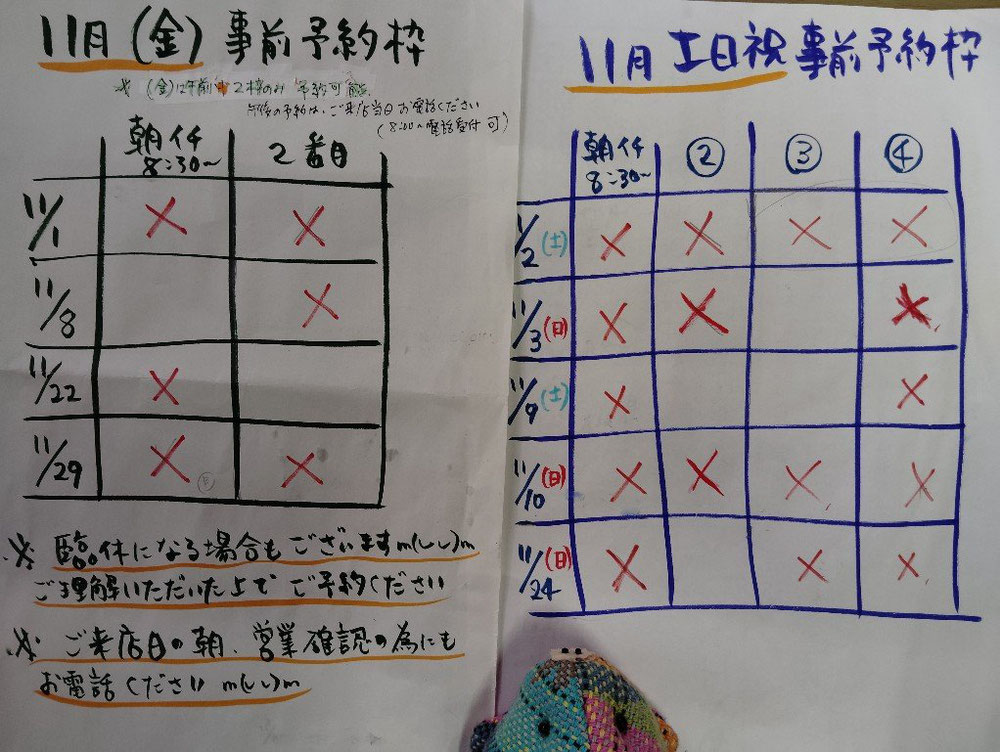 11月(金)事前予約枠
※(金)は午前中2枠のみ予約可能
午後の予約は、ご来店当日お電話ください
(8:00〜電話受付可)
朝イチ 8:30〜 2番目
11/1 × ×
11/8 ×
11/22 ×
11/29 × ×
※ 臨休になる場合もございますm(_ _)m
ご理解いただいた上でご予約ください
※ ご来店日の朝、営業確認の為にも
お電話くださいm(_ _)m
11月土日祝事前予約枠
朝イチ 8:30〜 ② ③ ④
11/2(土) × × × ×
11/3(日) × × ×
11/9(土) × ×
11/10(日) × × × ×
11/24(日) × × ×